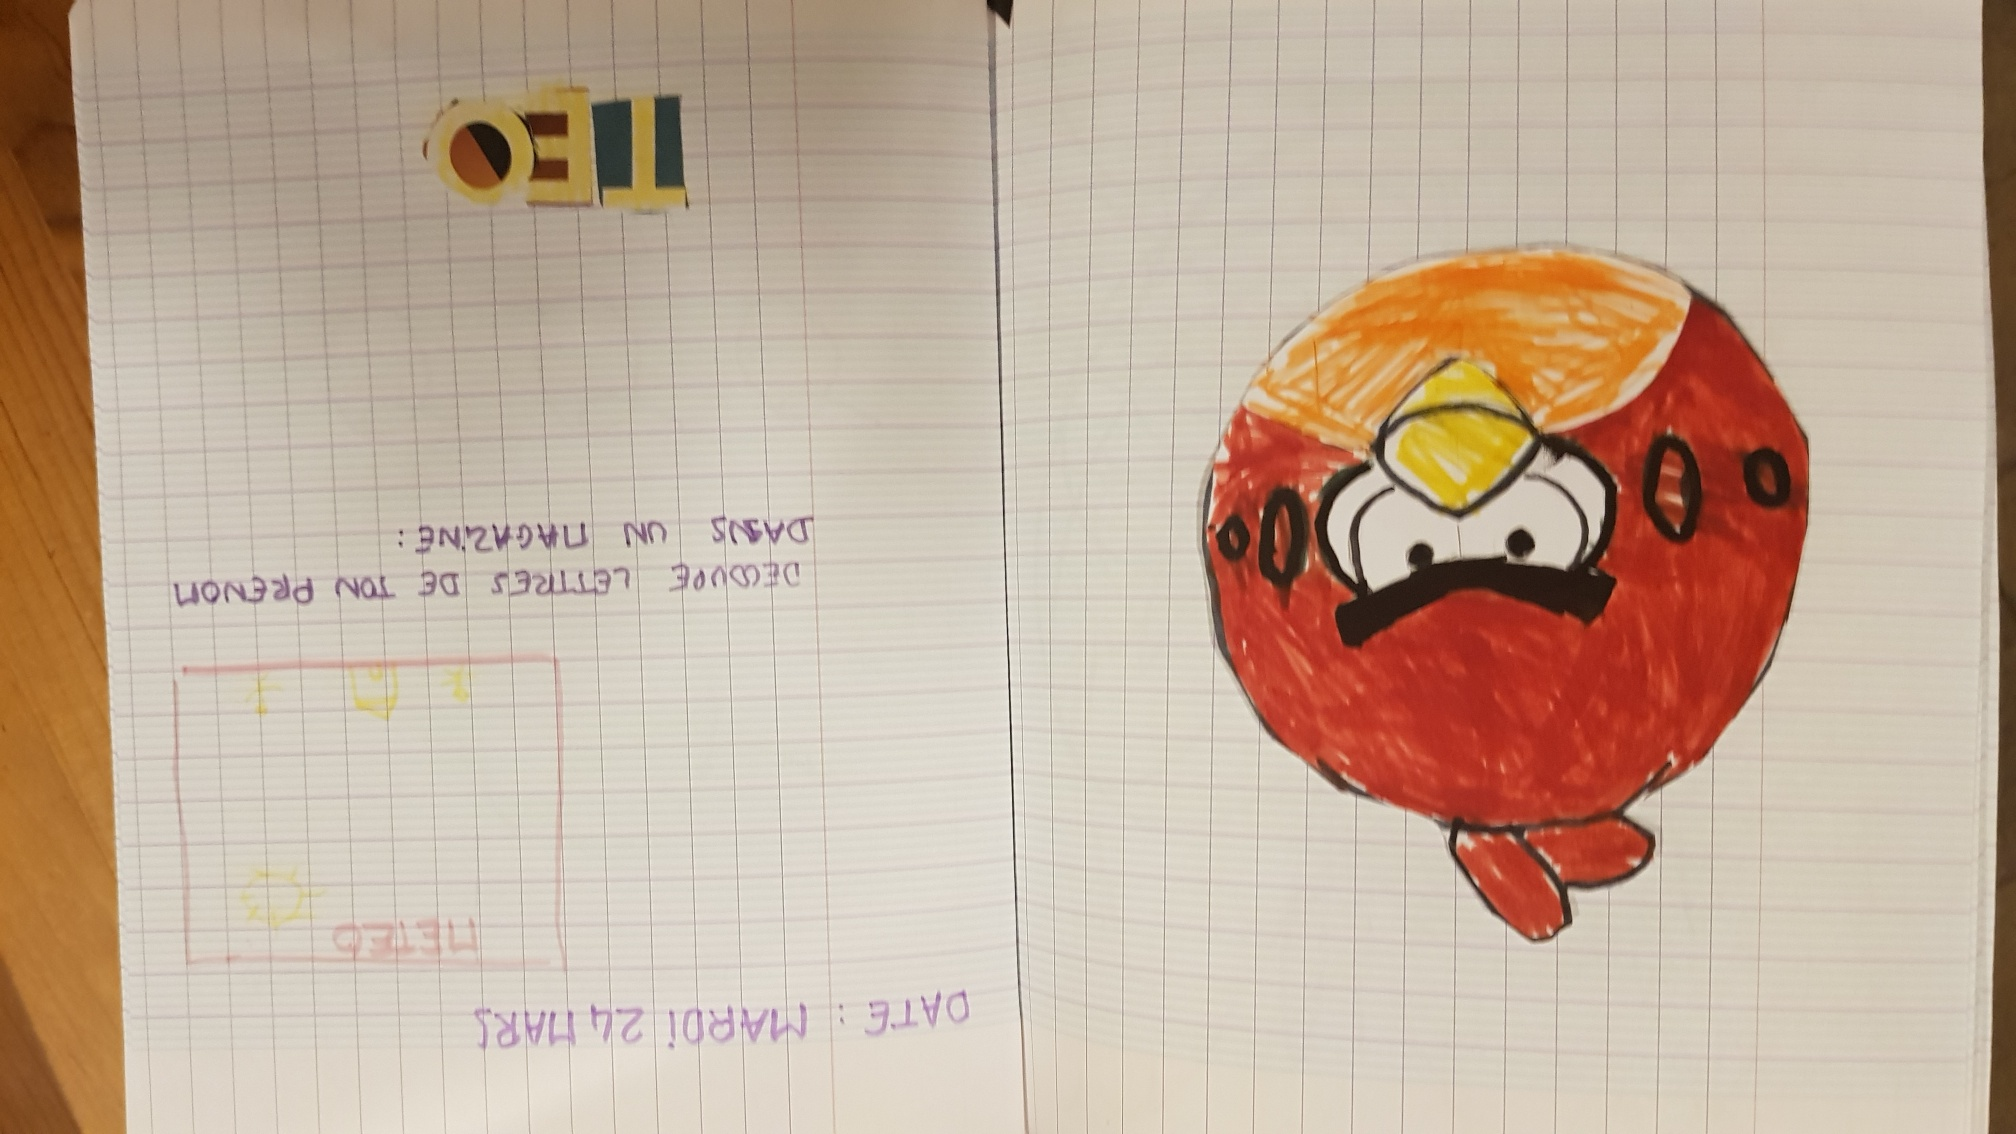 DATE : MARDI 24 MARS
METEO
DECOUPE LETTRES DE TON PRENOM
DANS UN MAGAZINE :
TEO